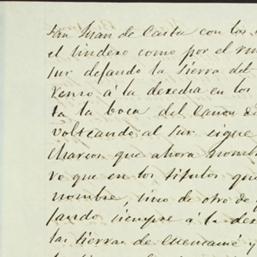 San Juan de Casta con los
el lindero como por el rum
sur dejando la tierra del
á la derecha en los
ta la boca del Cañon de
volteando al Sur sigue
charcon que ahora nomb
vo que en los titulos que
nombre, sino de otro de
jando siempre á la der
las tierras de Cuencamé y